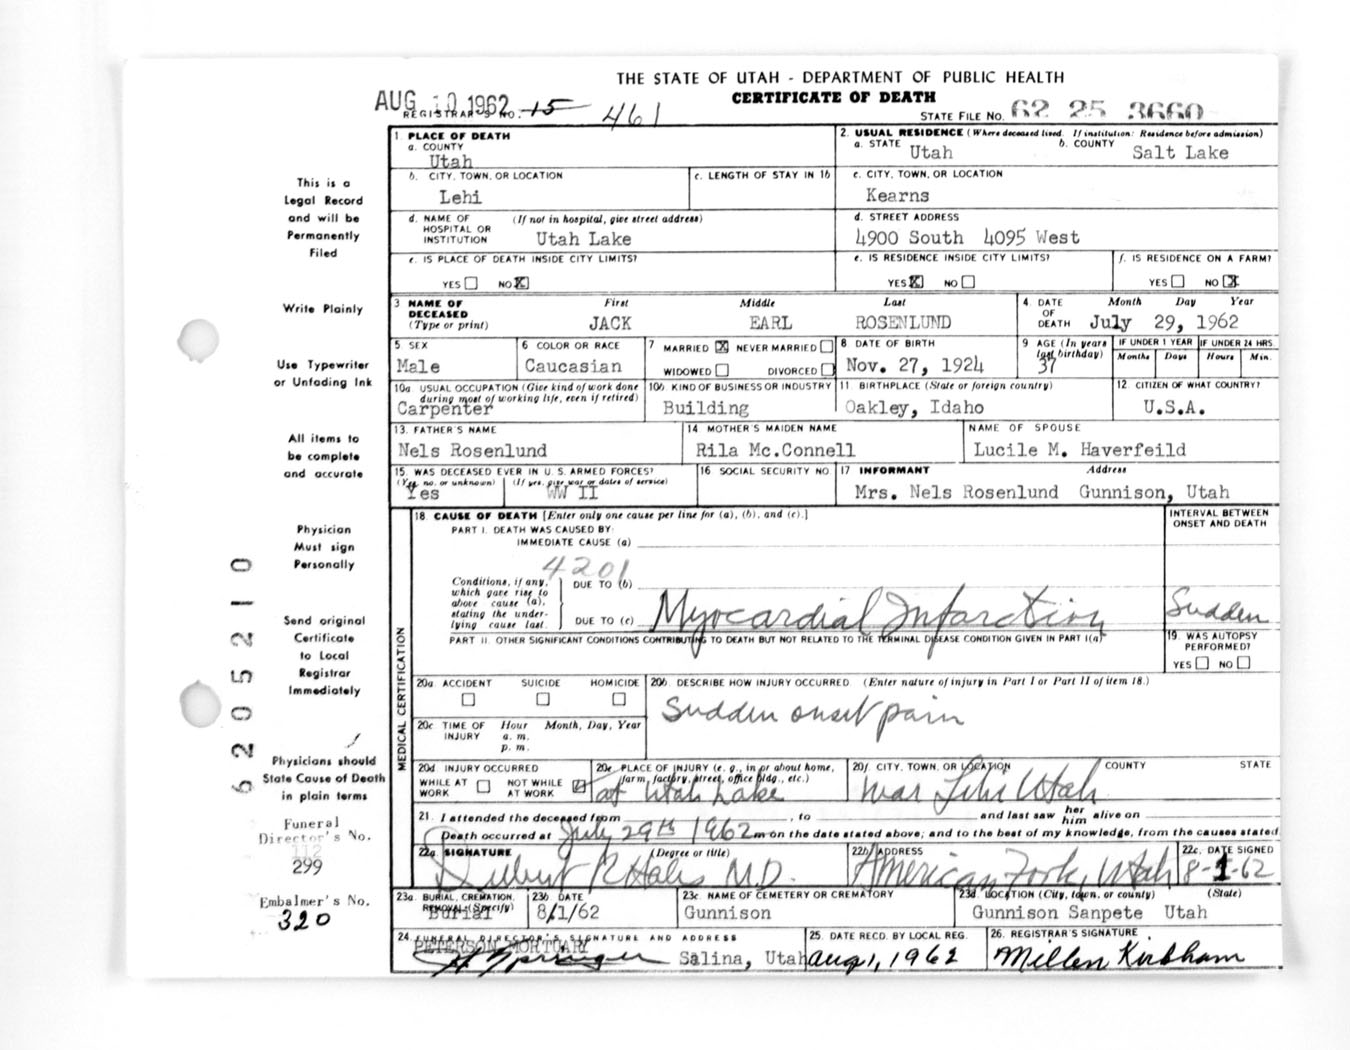 THE STATE OF UTAH - DEPARTMENT OF PUBLIC HEALTH
CERTIFICATE OF DEATH
AUG 10 1962
REGISTRAR'S NO. 15 461
STATE FILE NO. 62 25 3660
This is a
Legal Record
and will be
Permanently
Filed
Write Plainly
Use Typewriter
or Unfading Ink
All items to
be complete
and accurate
Physician
Must sign
Personally
Send original
Certificate
to Local
Registrar
Immediately
Physicians should
State Cause of Death
in plain terms
Funeral
Director's No.
112
299
Embalmer's No.
320
6205210
1. PLACE OF DEATH
a. COUNTY
Utah
2. USUAL RESIDENCE (Where deceased lived. If institution: Residence before admission)
a. STATE Utah b. COUNTY Salt Lake
b. CITY, TOWN, OR LOCATION
Lehi
c. LENGTH OF STAY IN 1b
c. CITY, TOWN, OR LOCATION
Kearns
d. NAME OF HOSPITAL OR INSTITUTION (If not in hospital, give street address)
Utah Lake
d. STREET ADDRESS
4900 South 4095 West
e. IS PLACE OF DEATH INSIDE CITY LIMITS?
YES NO X
e. IS RESIDENCE INSIDE CITY LIMITS?
YES X NO
f. IS RESIDENCE ON A FARM?
YES NO X
3 NAME OF DECEASED (Type or print)
First Middle Last
JACK EARL ROSENLUND
4. DATE OF DEATH Month Day Year
July 29, 1962
5 SEX
Male
6 COLOR OR RACE
Caucasian
7 MARRIED X NEVER MARRIED
WIDOWED DIVORCED
8 DATE OF BIRTH
Nov. 27, 1924
9 AGE (In years last birthday)
37
IF UNDER 1 YEAR
Months Days
IF UNDER 24 HRS.
Hours Min.
10a USUAL OCCUPATION (Give kind of work done during most of working life, even if retired)
Carpenter
10b KIND OF BUSINESS OR INDUSTRY
Building
11 BIRTHPLACE (State or foreign country)
Oakley, Idaho
12 CITIZEN OF WHAT COUNTRY?
U.S.A.
13. FATHER'S NAME
Nels Rosenlund
14 MOTHER'S MAIDEN NAME
Rila Mc.Connell
NAME OF SPOUSE
Lucile M. Haverfeild
15. WAS DECEASED EVER IN U. S. ARMED FORCES?
(Yes, no, or unknown) (If yes, give war or dates of service)
Yes WW II
16 SOCIAL SECURITY NO.
17 INFORMANT Address
Mrs. Nels Rosenlund Gunnison, Utah
MEDICAL CERTIFICATION
18. CAUSE OF DEATH [Enter only one cause per line for (a), (b), and (c).]
PART I. DEATH WAS CAUSED BY:
IMMEDIATE CAUSE (a)
INTERVAL BETWEEN ONSET AND DEATH
4201
Conditions, if any, which gave rise to above cause (a), stating the underlying cause last.
DUE TO (b)
DUE TO (c) Myocardial Infarction
Sudden
PART II. OTHER SIGNIFICANT CONDITIONS CONTRIBUTING TO DEATH BUT NOT RELATED TO THE TERMINAL DISEASE CONDITION GIVEN IN PART I(a)
19. WAS AUTOPSY PERFORMED?
YES NO
20a. ACCIDENT SUICIDE HOMICIDE
20b. DESCRIBE HOW INJURY OCCURRED. (Enter nature of injury in Part I or Part II of item 18.)
Sudden onset pain
20c TIME OF INJURY Hour Month, Day, Year
a. m.
p. m.
20d INJURY OCCURRED
WHILE AT WORK NOT WHILE AT WORK
20e. PLACE OF INJURY (e. g., in or about home, farm, factory, street, office bldg., etc.)
at Utah Lake
20f. CITY, TOWN, OR LOCATION COUNTY STATE
near Lehi Utah
21. I attended the deceased from , to and last saw her him alive on
Death occurred at July 29th 1962 m on the date stated above; and to the best of my knowledge, from the causes stated
22a. SIGNATURE (Degree or title)
Hales M.D.
22b. ADDRESS
American Fork, Utah
22c. DATE SIGNED
8-1-62
23a. BURIAL, CREMATION, REMOVAL (Specify)
Burial
23b DATE
8/1/62
23c. NAME OF CEMETERY OR CREMATORY
Gunnison
23d LOCATION (City, town, or county) (State)
Gunnison Sanpete Utah
24. FUNERAL DIRECTOR'S SIGNATURE AND ADDRESS
PETERSON MORTUARY
Springer Salina, Utah
25. DATE RECD. BY LOCAL REG.
Aug 1, 1962
26. REGISTRAR'S SIGNATURE
Millen Kirkham